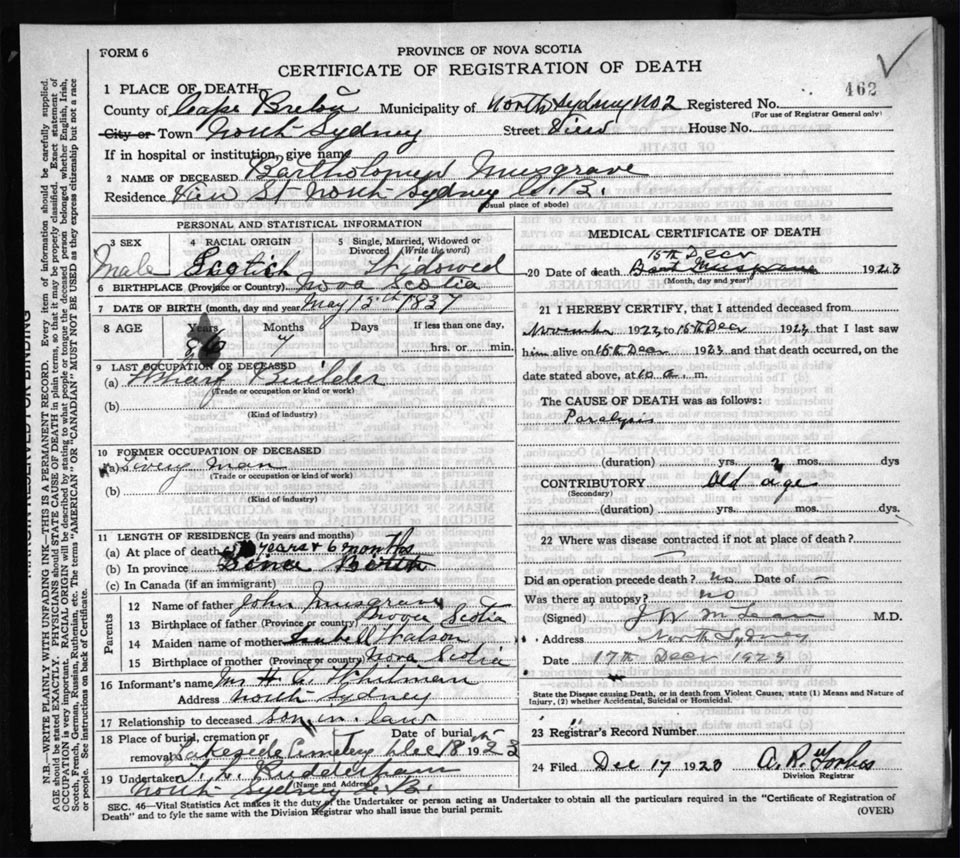 462
FORM 6
PROVINCE OF NOVA SCOTIA
CERTIFICATE OF REGISTRATION OF DEATH
1 PLACE OF DEATH
County of Cape Breton Municipality of North Sydney No 2 Registered No.
(For use of Registrar General only)
City or Town North Sydney Street View House No.
If in hospital or institution, give name
2 NAME OF DECEASED Bartholomew Musgrave
Residence View St North Sydney C. B.
(Usual place of abode)
PERSONAL AND STATISTICAL INFORMATION
3 SEX 4 RACIAL ORIGIN 5 Single, Married, Widowed or Divorced (Write the word)
Male Scotich Widowed
6 BIRTHPLACE (Province or Country) Nova Scotia
7 DATE OF BIRTH (month, day and year) May 13th 1837
8 AGE Years Months Days If less than one day,
86 7 hrs. or min.
9 LAST OCCUPATION OF DECEASED
(a) Wharf Builder
(Trade or occupation or kind or work)
(b)
(Kind of industry)
10 FORMER OCCUPATION OF DECEASED
(a) Livery man
(Trade or occupation or kind of work)
(b)
(Kind of industry)
11 LENGTH OF RESIDENCE (In years and months)
(a) At place of death years & 6 months
(b) In province Since Birth
(c) In Canada (if an immigrant)
Parents
12 Name of father John Musgrave
13 Birthplace of father (Province or country) Nova Scotia
14 Maiden name of mother Watson
15 Birthplace of mother (Province or country) Nova Scotia
16 Informant's name H Whitman
Address North Sydney
17 Relationship to deceased son in law
18 Place of burial, cremation or Date of burial
removal Lakeside Cemetery Dec 18th 1923
19 Undertaker Rudderham
(Name and Address)
North Sydney C. B.
MEDICAL CERTIFICATE OF DEATH
15th Decr
20 Date of death Bart Musgrave 1923
(Month, day and year)
21 I HEREBY CERTIFY, that I attended deceased from
November 1923 to 15th Decr 1923 that I last saw
him alive on 15th Decr 1923 and that death occurred, on the
date stated above, at 10 a. m.
The CAUSE OF DEATH was as follows:
Paralysis
(duration) yrs. mos. dys
CONTRIBUTORY Old age
(Secondary)
(duration) yrs. mos. dys.
22 Where was disease contracted if not at place of death?
Did an operation precede death? no Date of –
Was there an autopsy? no
(Signed) M.D.
Address North Sydney
Date 17th Decr 1923
State the Disease causing Death, or in death from Violent Causes, state (1) Means and Nature of
Injury, (2) whether Accidental, Suicidal or Homicidal.
23 Registrar's Record Number
24 Filed Dec 17 1923 A. R. Forbes
Division Registrar
SEC. 46—Vital Statistics Act makes it the duty of the Undertaker or person acting as Undertaker to obtain all the particulars required in the "Certificate of Registration of
Death" and to fyle the same with the Division Registrar who shall issue the burial permit. (OVER)
MARGIN RESERVED FOR BINDING
N.B.—WRITE PLAINLY WITH UNFADING INK—THIS IS A PERMANENT RECORD. Every item of information should be carefully supplied.
AGE should be stated EXACTLY. PHYSICIANS should STATE CAUSE OF DEATH in plain terms, so that it may be properly classified. Exact statement of
OCCUPATION is very important. RACIAL ORIGIN will be described by stating to what people or tongue the deceased person belonged whether English, Irish,
Scotch, French, German, Russian, Ruthenian, etc. The terms "AMERICAN" or "CANADIAN" MUST NOT BE USED as they express citizenship but not a race
or people. See instructions on back of Certificate.